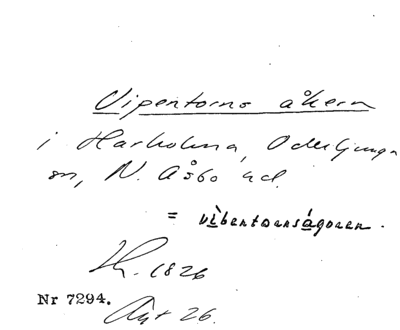 Vipentorns åkern
i Harholma, Oderljunga
sn, N. Åsbo hd.
= vibentornságoren.
Lh. 1826
Nr 7294.
Akt 26.